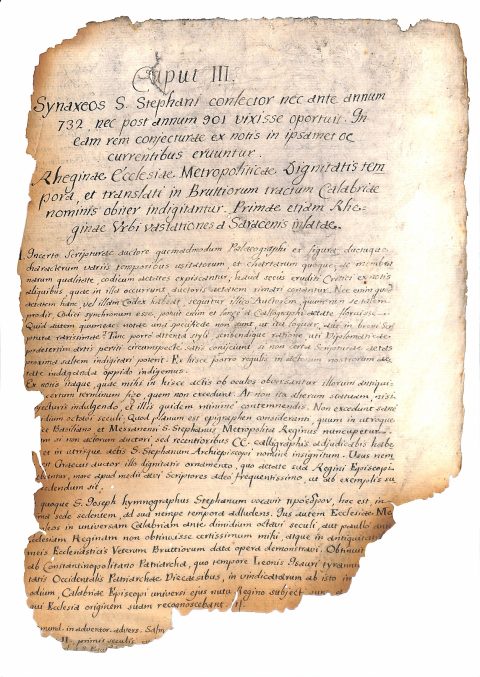 Caput III.
Synaxeos S. Stephani confector nec ante annum
732, nec post annum 901 vixisse oportuit. In
eam rem conjecturae ex notis in ipsamet oc
currentibus eruuntur.
Rheginae Ecclesiae Metropoliticae Dignitatis tem
pora, et translati in Bruttiorum tractum Calabriae
nominis obiter indigitantur. Primae etiam Rhe-
ginae Urbi vastationes a Saracenis inlatae.
Incerto Scripturae auctore quemadmodum Palaeographi ex figura, ductuque
characterum variis temporibus usitatorum et chartarum quoque, ac membra
narum qualitate, codicum aetates explicantur, haud secus eruditi Critici ex notis
aliquibus, quae in illa occurrunt auctoris aetatem rimari conantur. Nec enim quod
aetatem hanc, vel illam Codex habeat, sequitur illico Auctorem,
modii Codici synchronum esse, potuit enim et longe a Calligraphi aetate floruisse.
Quid autem quum eae notae una specifice non sunt, ut ita loquar, aut in brevi Scri
ptura rarissimae? Tunc porro attenta styli, scribendique ratione, uti Diplomaticae
artis periti circumspecte sane conjiciunt si non certa Scripturae aetas
proxima saltem indigitari poterit. Ex hisce porro regulis in actorum nostrorum ae
tate indaganda oppido indigemus.
Ex notis itaque, quae mihi in hisce actis ob oculos obversantur illorum antiqui
terminum figo, quem non excedunt. At non ita alterum statuam, nisi
indulgendo, et illis quidem minime contemnendis. Non excedunt sane
dium octavi seculi. Quod planum est epigraphen consideranti, quum in utroque
et Basiliano et Messanensi S. Stephanus Metropolita Reginus nuncupetur.
m si non actorum auctori, sed recentioribus CC. calligraphis adjudicabis habe
et in utrisque actis S. Stephanum Archiepiscopi nomine insignitum. Usus nem
Graecus auctor illo dignitatis ornamento, quo aetate sua Regini Episcopi
entur, more apud medii aevi Scriptores adeo frequentissimo, ut ab exemplis su
dendum sit.
quoque S. Joseph hymnographus Stephanum vocavit πρόεδρον, hoc est, in
ma sede sedentem, ad sua nempe tempora adludens. Jus autem Ecclesiae Me
in universam Calabriam ante dimidium octavi seculi, aut paullo ant
Ecclesiam Reginam non obtinuisse certissimum mihi, atque in antiquitati
Ecclesiasticis Veterum Bruttiorum data opera demonstravi. Obtinuit
ab Constantinopolitano Patriarcha, quo tempore Leonis Isauri tyrannu
tatis Occidentalis Patriarchae Dioecesibus, in vindicatarum ab isto in
odium, Calabriae Episcopi universi ejus nutu Regino subject sunt
qui Ecclesia originem suam recognoscebant.
mund. in adventor. advers. Salm
II. primis seculis